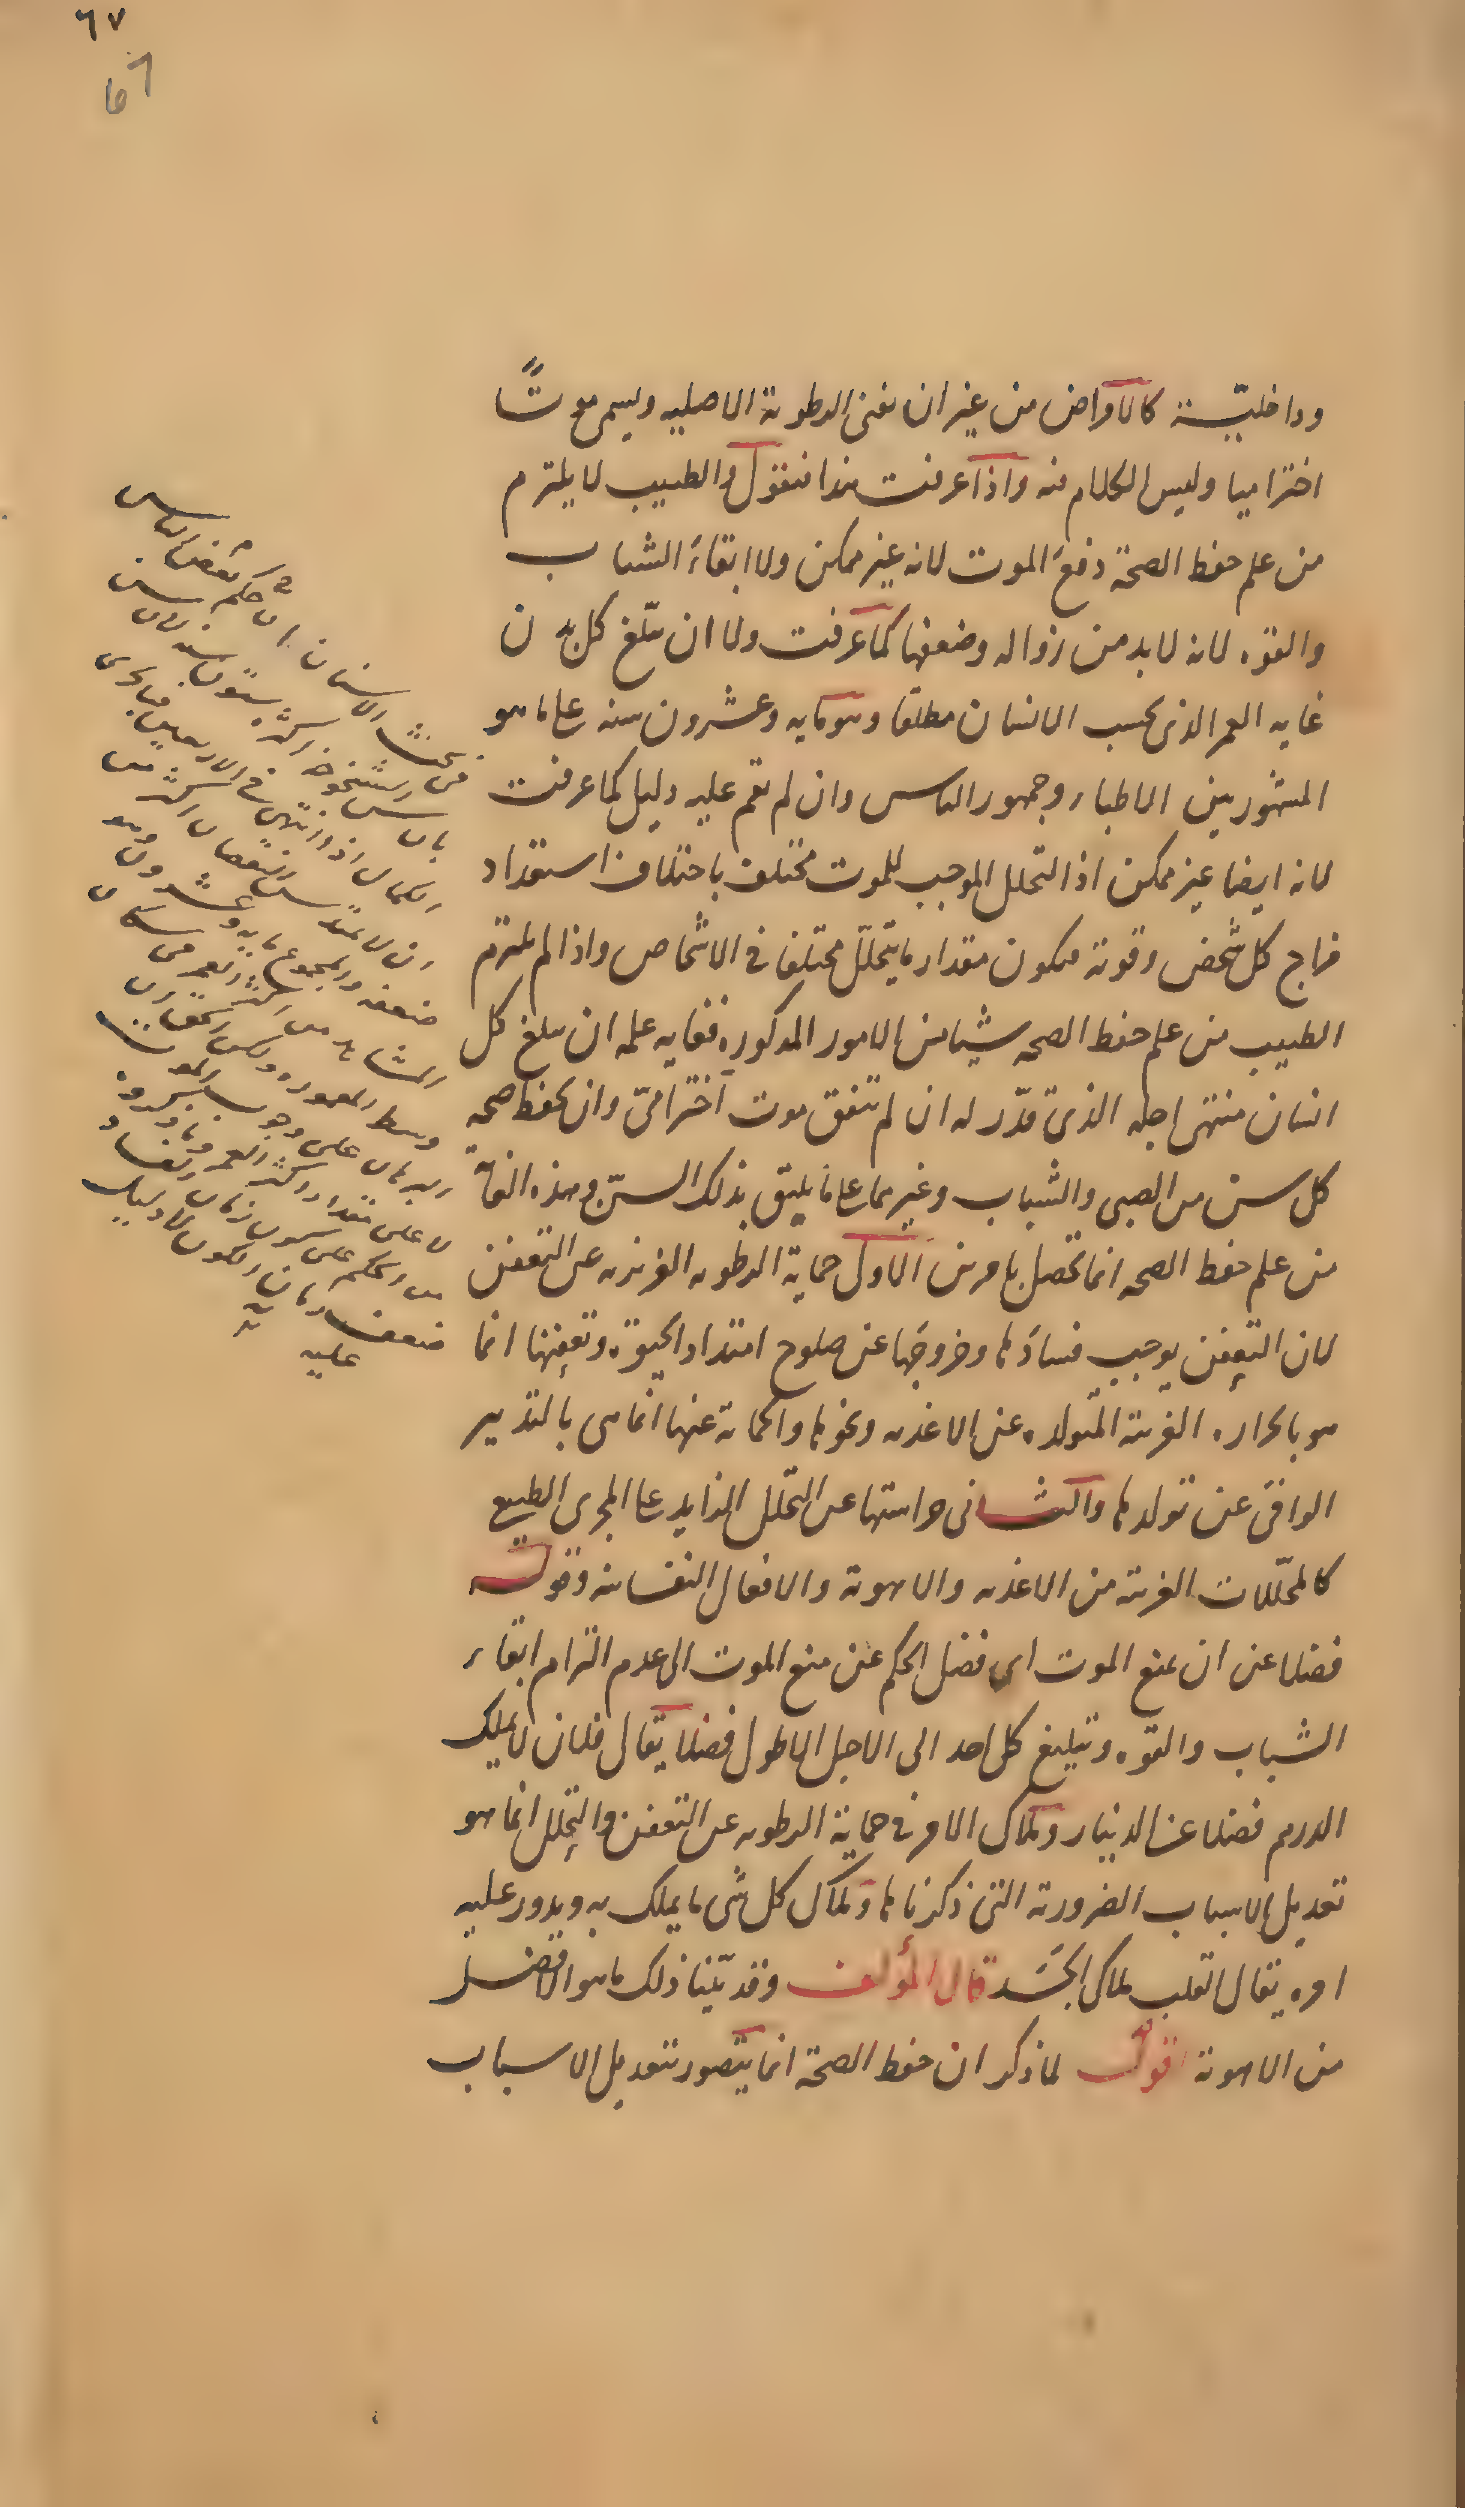 ٦٧
٦٦
وداخليّة كالامراض من غير ان تفنى الرطوبة الاصليه ويسمى موتًا
اختراميا وليس الكلام فيه واذا عرفت هذا فنقول والطبيب لا يلتزم
من علم حفظ الصحة دفعَ الموت لانه غير ممكن ولا ابقاءَ الشباب
والقوه لانه لا بد من زواله وضعفها كما عرفت ولا ان يبلّغ كل بدن
غايه العمر الذى بحسب الانسان مطلقا وهو مايه وعشرون سنه على ما هو
المشهور بين الاطباء وجمهور الناس وان لم يقم عليه دليل كما عرفت
لانه ايضا غير ممكن اذ التحلل الموجب للموت مختلف باختلاف استعداد
مزاج كل شخص وقوته فيكون مقدار ما يتحلّل مختلفا فى الاشخاص واذا لم يلتزم
الطبيب من علم حفظ الصحه شيا من الامور المذكوره فغايه علمه ان يبلغ كل
انسان منتهى اجله الذى قدّر له ان لم يتفق موت اخترامىّ وان يحفظ صحة
كل سن من الصبى والشباب وغيرهما على ما يليق بذلك السنّ وهذه الغاية
من علم حفظ الصحه انما تحصل بامرين الاول حماية الرطوبه الغريزيه عن التعفن
لان التعفن يوجب فسادَها وخروجَها عن صلوح امتداد الحيوة وتعفنها انما
هو بالحراره الغريبة المتولده عن الاغذيه ونحوها والحماية عنها انما هى بالتدبير
الواقى عن تولدها والثانى حراستها عن التحلل الزايد على المجرى الطبيعى
كالمحلّلات الغريبة من الاغذيه والاهوية والافعال النفسانيه وقوله
فضلا عن ان يمنع الموت اى فضل الحكم عن منع الموت الى عدم التزام ابقاء
الشباب والقوه وتبليغ كل احد الى الاجل الاطول فضلا يقال فلان لا يملك
الدرهم فضلا عن الدينار وملاك الامر فى حماية الرطوبه عن التعفن والتحلل انما هو
تعديل الاسباب الضرورية التى ذكرناها وملاك كل شى ما يملك به ويدور عليه
امره يقال القلب ملاك الجسَد قال المؤلف وقد بيّنا ذلك ما هو الافضل
من الاهوية اقول لما ذكر ان حفظ الصحة انما يتصور بتعديل الاسباب
فى بحث الاسنان ان حكم بعض الناس
بان سن الشيخوخه اكثره ستون سنه لان سن
الكمال اذا انتهى فى الاربعين
ان لا يمتد سن النقصان اكثر من
ضعفه والمجموع مايه وعشرون وهو
المشاهد من اكثر العمر فى سكان
وسط المعموره ولكن الحق ان
البرهان على وجوب الموت
لا على مقدار اكثر العمر وما ذكروه
من الحكم على كون زمان الفساد
ضعف زمان الكون لا دليل
عليه